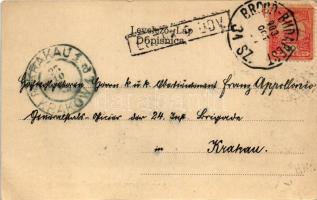 Levelező-Lap
Dopisnica
BROD-BUDAPEST
KRAKAU 1
KRAKÓW
Hochgeboren Herrn k.u.k. Oberstleutnant Franz Appollonio
Generalstabs-Officier der 24. Inf. Brigade
in
Krakau